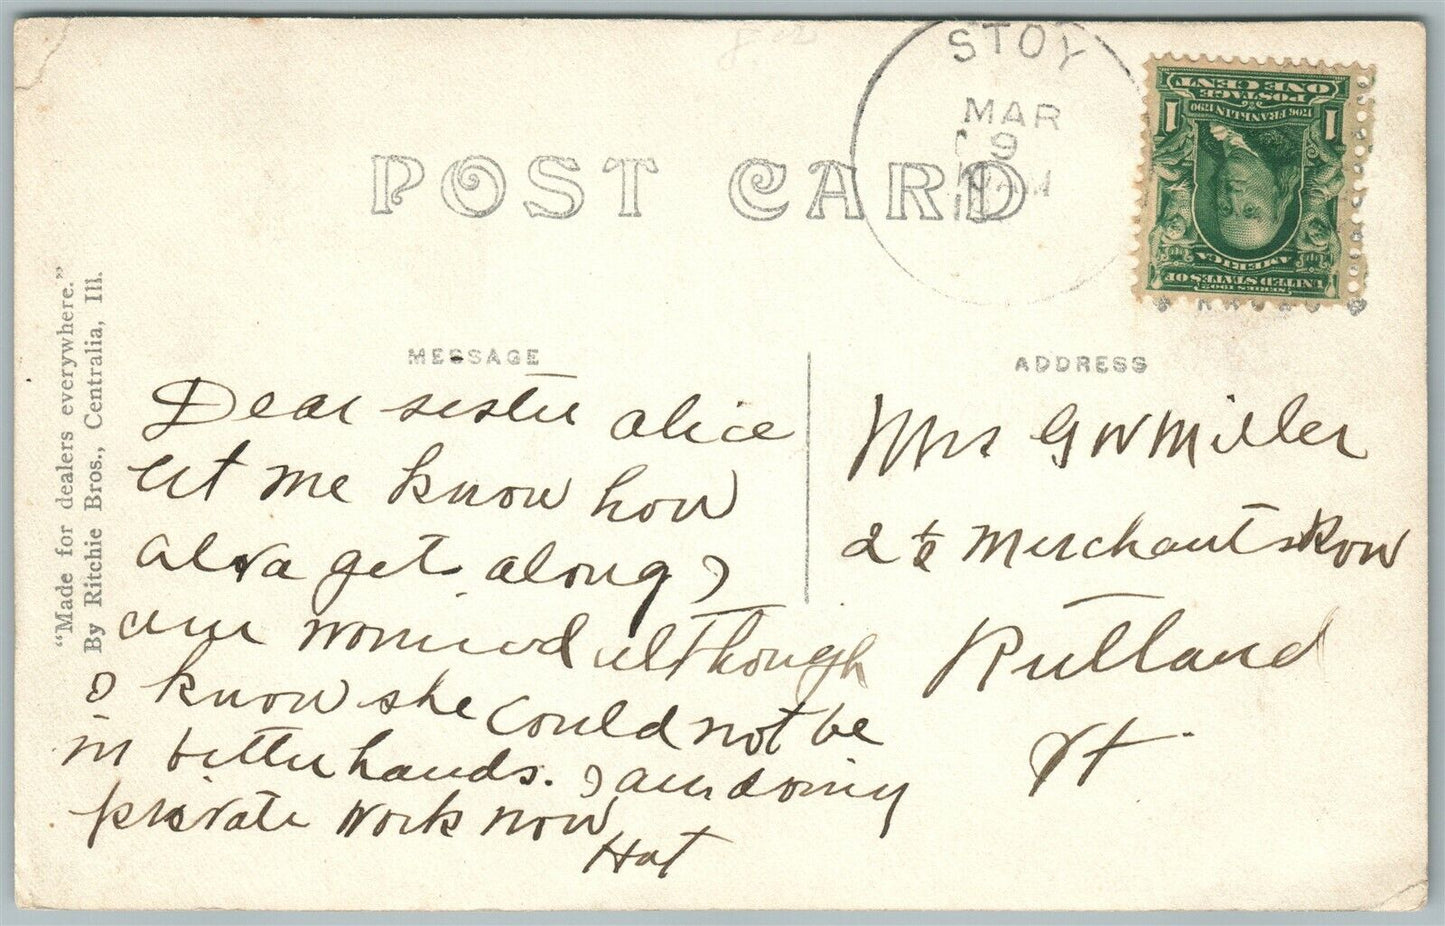 STOY
MAR
9
POST CARD
ONE CENT
POSTAGE
1706 FRANKLIN 1790
1 1
AMERICA
UNITED STATES OF
SERIES 1902
"Made for dealers everywhere."
By Ritchie Bros., Centralia, Ill.
MESSAGE
Dear sister alice
Let me know how
alva get along, I
am worried although
I know she could not be
in better hands. I am doing
private work now
Hat
ADDRESS
Mrs G W Miller
2 1/2 Merchants Row
Rutland
Vt.